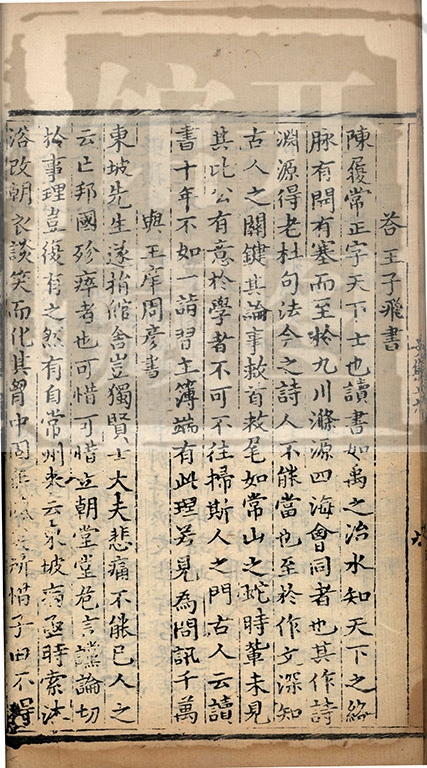 答王子飛書
陳履常正字天下士也讀書如禹之治水知天下之絡
脉有開有塞而至於九川滌源四海會同者也其作詩
淵源得老杜句法今之詩人不能當也至於作文深知
古人之關鍵其論事救首救尾如常山之蛇時輩未見
其比公有意於學者不可不往掃斯人之門古人云讀
書十年不如一詣習主簿端有此理若見為問訊千萬
與王庠周彥書
東坡先生遂捐館舍豈獨賢士大夫悲痛不能已人之
云亡邦國殄瘁者也可惜可惜立朝堂堂危言讜論切
於事理豈復有之然有自常州來云東坡病亟時索沐
浴改朝衣談笑而化其胷中固所惜子由不得